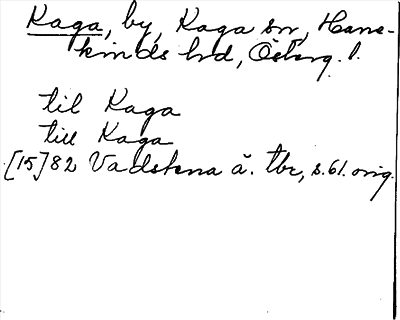 Kaga, by, Kaga sn, Hane-
kinds hd, Österg. l.
til Kaga
till Kaga
[15]82 Vadstena ä. tbr, s. 61. orig.